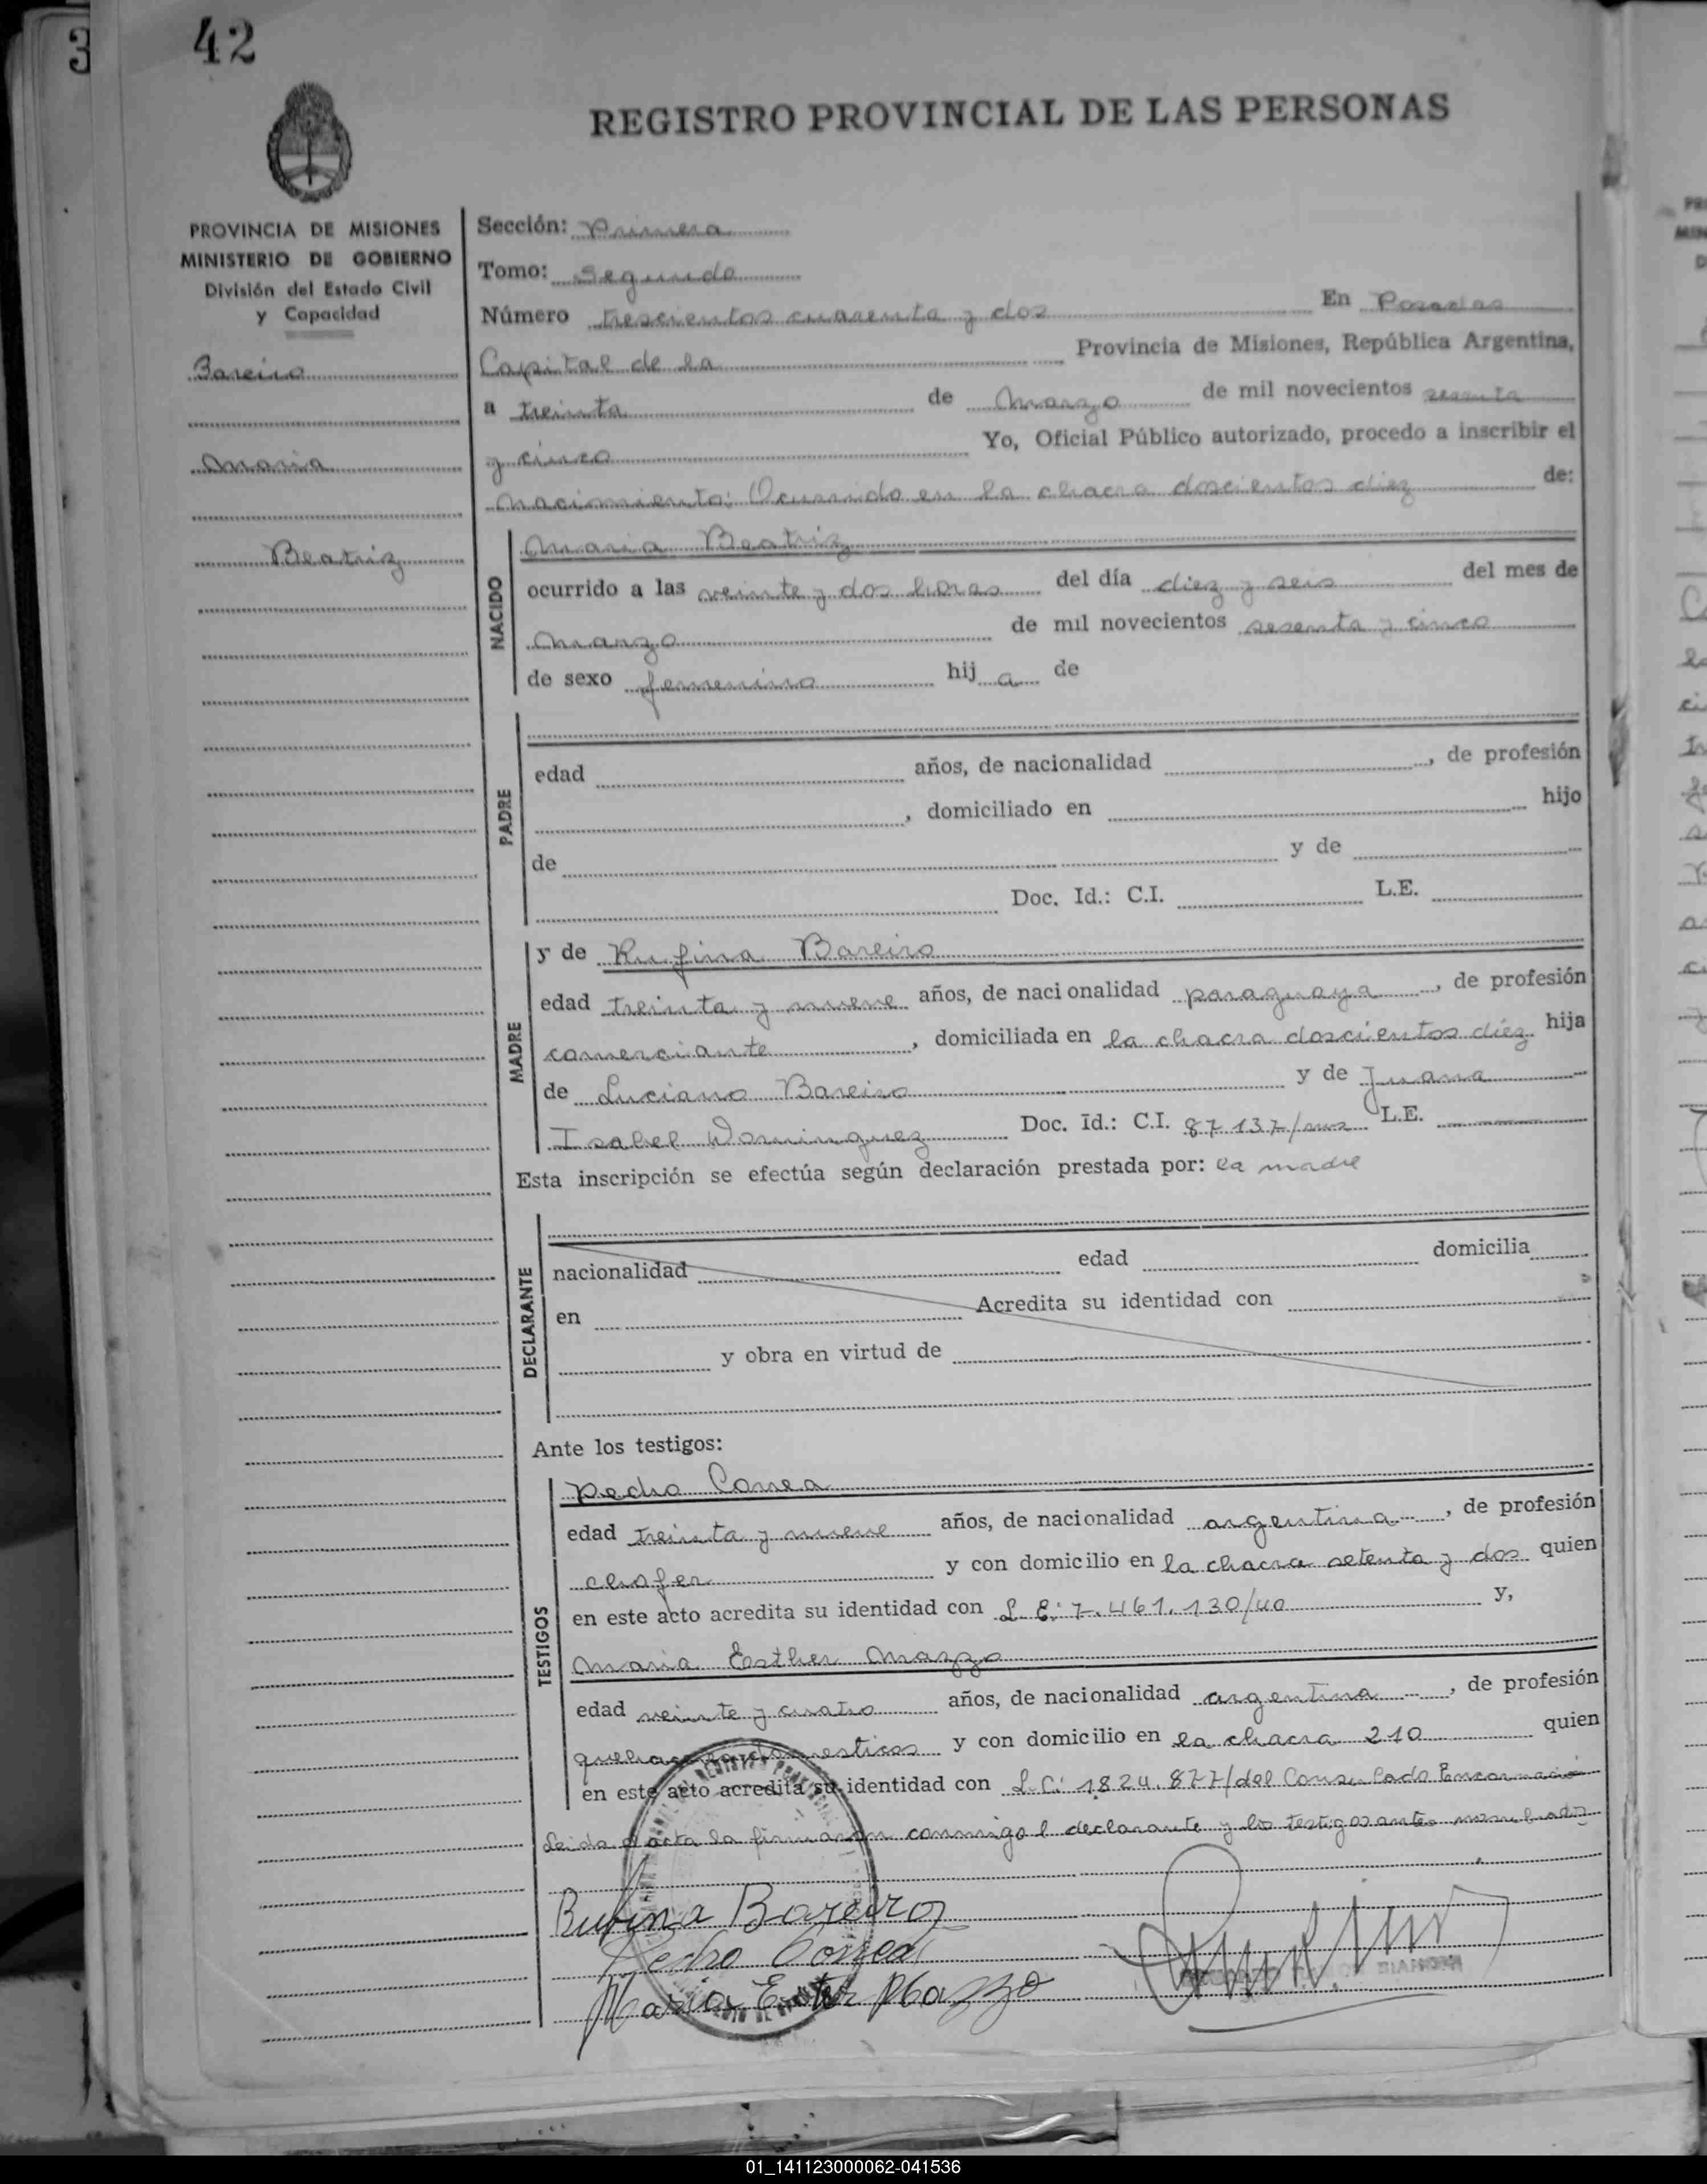 3
42
REGISTRO PROVINCIAL DE LAS PERSONAS
PROVINCIA DE MISIONES
MINISTERIO DE GOBIERNO
División del Estado Civil
y Capacidad
Bareiro
Maria
Beatriz
Sección: Primera
Tomo: Segundo
Número trescientos cuarenta y dos En Posadas
Capital de la Provincia de Misiones, República Argentina,
a treinta de Marzo de mil novecientos sesenta
y cinco Yo, Oficial Público autorizado, procedo a inscribir el
nacimiento: Ocurrido en la chacra doscientos diez de:
NACIDO
Maria Beatriz
ocurrido a las veinte y dos horas del día diez y seis del mes de
Marzo de mil novecientos sesenta y cinco
de sexo femenino hij a de
PADRE
edad años, de nacionalidad , de profesión
, domiciliado en hijo
de y de
Doc. Id.: C.I. L.E.
MADRE
y de Rufina Bareiro
edad treinta y nueve años, de nacionalidad paraguaya , de profesión
comerciante , domiciliada en la chacra doscientos diéz hija
de Luciano Bareiro y de Juana
Isabel Dominguez Doc. Id.: C.I. 87.137/mns L.E.
Esta inscripción se efectúa según declaración prestada por: la madre
DECLARANTE
nacionalidad edad domicilia
en Acredita su identidad con
y obra en virtud de
Ante los testigos:
TESTIGOS
Pedro Correa
edad treinta y nueve años, de nacionalidad argentina , de profesión
chofer y con domicilio en la chacra setenta y dos quien
en este acto acredita su identidad con L.E: 7.461.130/40 y,
Maria Esther Mazzo
edad veinte y cuatro años, de nacionalidad argentina , de profesión
quehaceres domesticos y con domicilio en la chacra 210 quien
en este acto acredita su identidad con L.C: 1.824.877/del Consulado Encarnación
Leida el acta la firmaron conmigo l declarante y los testigos antes nombrados
Rufina Bareiro
Pedro Correa
Maria Ester Mazzo
BIANCHI
01_141123000062-041536